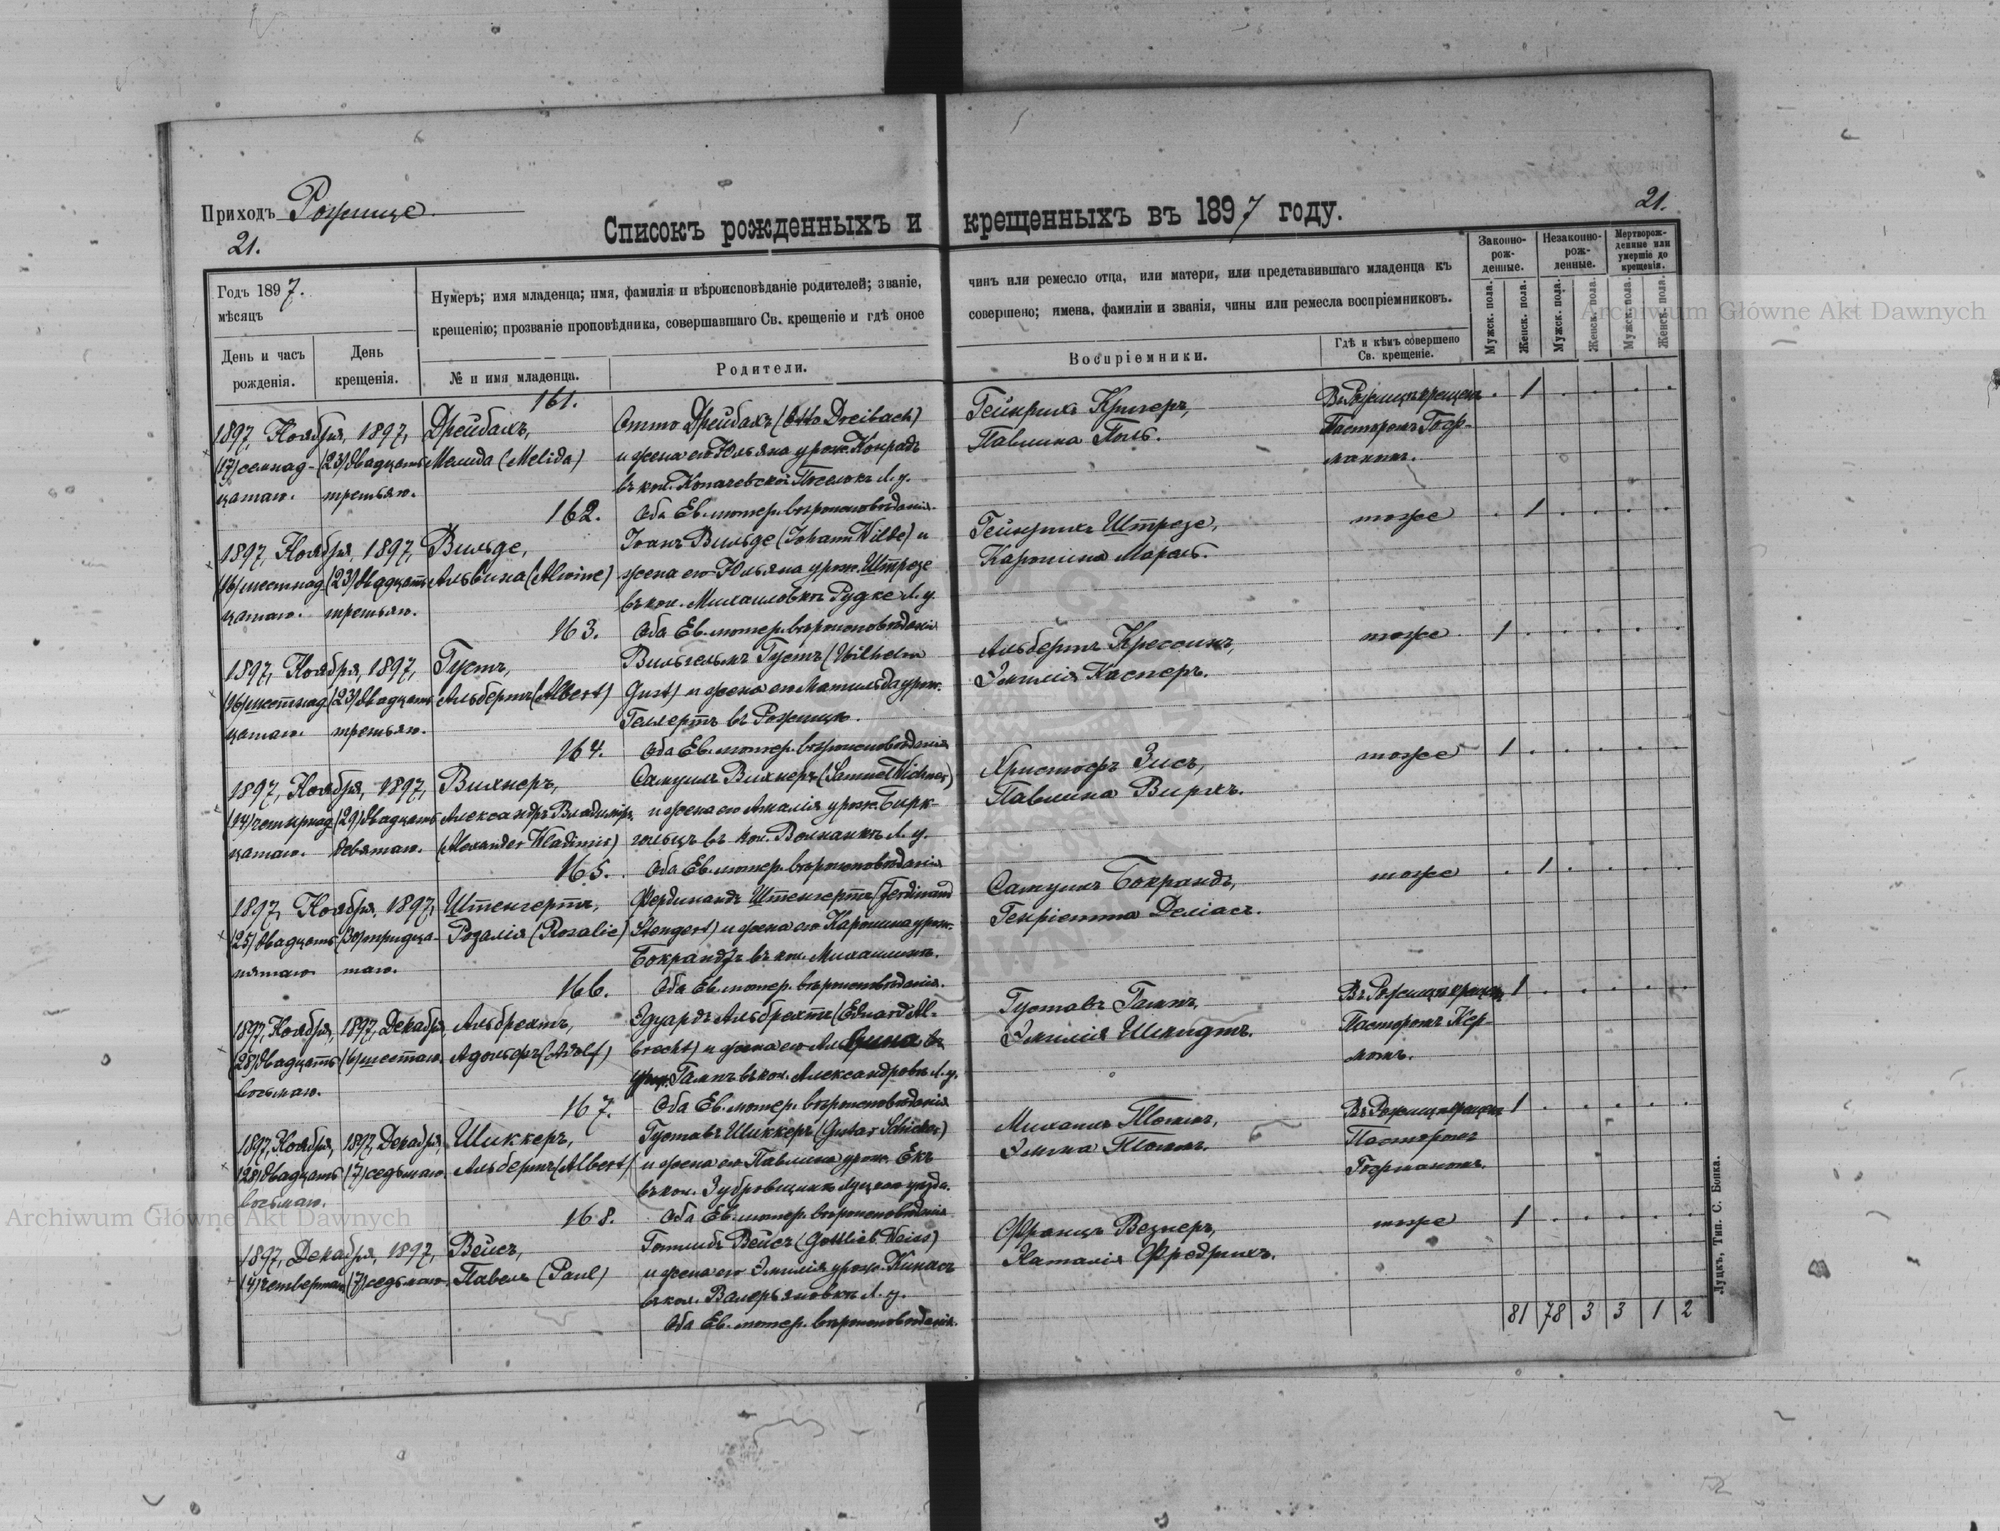 Приходъ Рожище
21.
21.
Списокъ рожденныхъ и крещенныхъ въ 1897 году.
Годъ 1897.
мѣсяцъ
День и часъ рожденія.
День крещенія.
Нумеръ; имя младенца; имя, фамилія и вѣроисповѣданіе родителей; званіе, чинъ или ремесло отца, или матери, или представившаго младенца къ
крещенію; прозваніе проповѣдника, совершавшаго Св. крещеніе и гдѣ оное совершено; имена, фамиліи и званія, чины или ремесла воспріемниковъ.
№ и имя младенца.
Родители.
Воспріемники.
Гдѣ и кѣмъ совершено Св. крещеніе.
Законно-рож-денные.
Незаконно-рож-денные.
Мертворож-денные или умершіе до крещенія.
Мужск. пола.
Женск. пола.
Мужск. пола.
Женск. пола.
Мужск. пола.
Женск. пола.
161.
1897, Ноября, 1897, Дрейбахъ, Отто Дрейбахъ (Otto Dreibach) Гейнрихъ Кригеръ, Въ Рожищѣ крещенъ 1
(17) семнад- (23) двадцать Мелида (Melida) и жена его Юльяна урож. Конрадъ Павлина Поль. Пасторомъ Гоф-
цатаго. третьяго. въ кол. Копачевской Поселокъ Л. у. маномъ.
162. Оба Ев.-лютер. вѣроисповѣданія.
1897, Ноября, 1897, Вильде, Іоанъ Вильде (Johann Wilde) и Гейнрихъ Штрезе, тоже 1
(16) шестнад (23) двадцать Альвина (Alwine) жена его Юльяна урож. Штрезе Каролина
цатаго. третьяго. въ кол. Михаиловкѣ Рудке Л. у.
163. Оба Ев.-лютер. вѣроисповѣданія
1897, Ноября, 1897, Густъ, Вильгельмъ Густъ (Wilhelm Альбертъ тоже 1
(16) шестнад (23) двадцать Альбертъ (Albert) Gust) и жена его Матильда урож. Эмилія Касперъ.
цатаго. третьяго. Геллертъ въ Рожищѣ.
164. Оба Ев.-лютер. вѣроисповѣданія
1897, Ноября, 1897, Вихнеръ, Самуилъ Вихнеръ (Samuel Wichner) Христофъ Зисъ, тоже 1
(14) четырнад (29) двадцать Александръ Владимиръ и жена его Амалія урож. Бирк- Павлина
цатаго. девятаго. (Alexander Wladimir) гольцъ въ кол. Волнянкѣ Л. у.
165. Оба Ев.-лютер. вѣроисповѣданія
1897, Ноября, 1897, Штенгертъ, Фердинандъ Штенгертъ (Ferdinand Самуилъ Бокрандъ, тоже 1
(25) двадцать (30) тридца- Розалія (Rosalie) Stengert) и жена его Каролина урож. Генріетта Деліасъ.
пятаго таго. Бокрандъ въ кол. Михаилинѣ.
166. Оба Ев.-лютер. вѣроисповѣданія.
1897, Ноября, 1897, Декабря, Альбрехтъ, Эдуардъ Альбрехтъ (Eduard Al- Густавъ Гаммъ, Въ Рожищѣ крещенъ 1
(28) двадцать (6) шестаго. Адольфъ (Adolf) brecht) и жена его Альвина Эмилія Шмидтъ. Пасторомъ Кер-
восьмаго. урож. Гаммъ въ кол. Александровкѣ Л. у. момъ.
167. Оба Ев.-лютер. вѣроисповѣданія
1897, Ноября, 1897, Декабря, Шиккеръ, Густавъ Шиккеръ (Gustav Schicker) Михаилъ Въ Рожищѣ крещенъ 1
(28) двадцать (7) седьмаго. Альбертъ (Albert) и жена его Павлина урож. Екъ Эмма Пасторомъ
восьмаго. въ кол. Зубровщинѣ Луцкаго уѣзда. Гофманомъ.
168. Оба Ев.-лютер. вѣроисповѣданія
1897, Декабря, 1897, Вейсъ, Готлибъ Вейсъ (Gottlieb Weiss) Францъ Везнеръ, тоже 1
(4) четвертаго (7) седьмаго Павелъ (Paul) и жена его Эмилія урож. Кинасъ Наталія Фредрихъ.
въ кол. Валерьяновкѣ Л. у.
Оба Ев.-лютер. вѣроисповѣданія.
81 78 3 3 1 2
Луцкъ, Тип. С. Бонка.
Archiwum Główne Akt Dawnych
Archiwum Główne Akt Dawnych